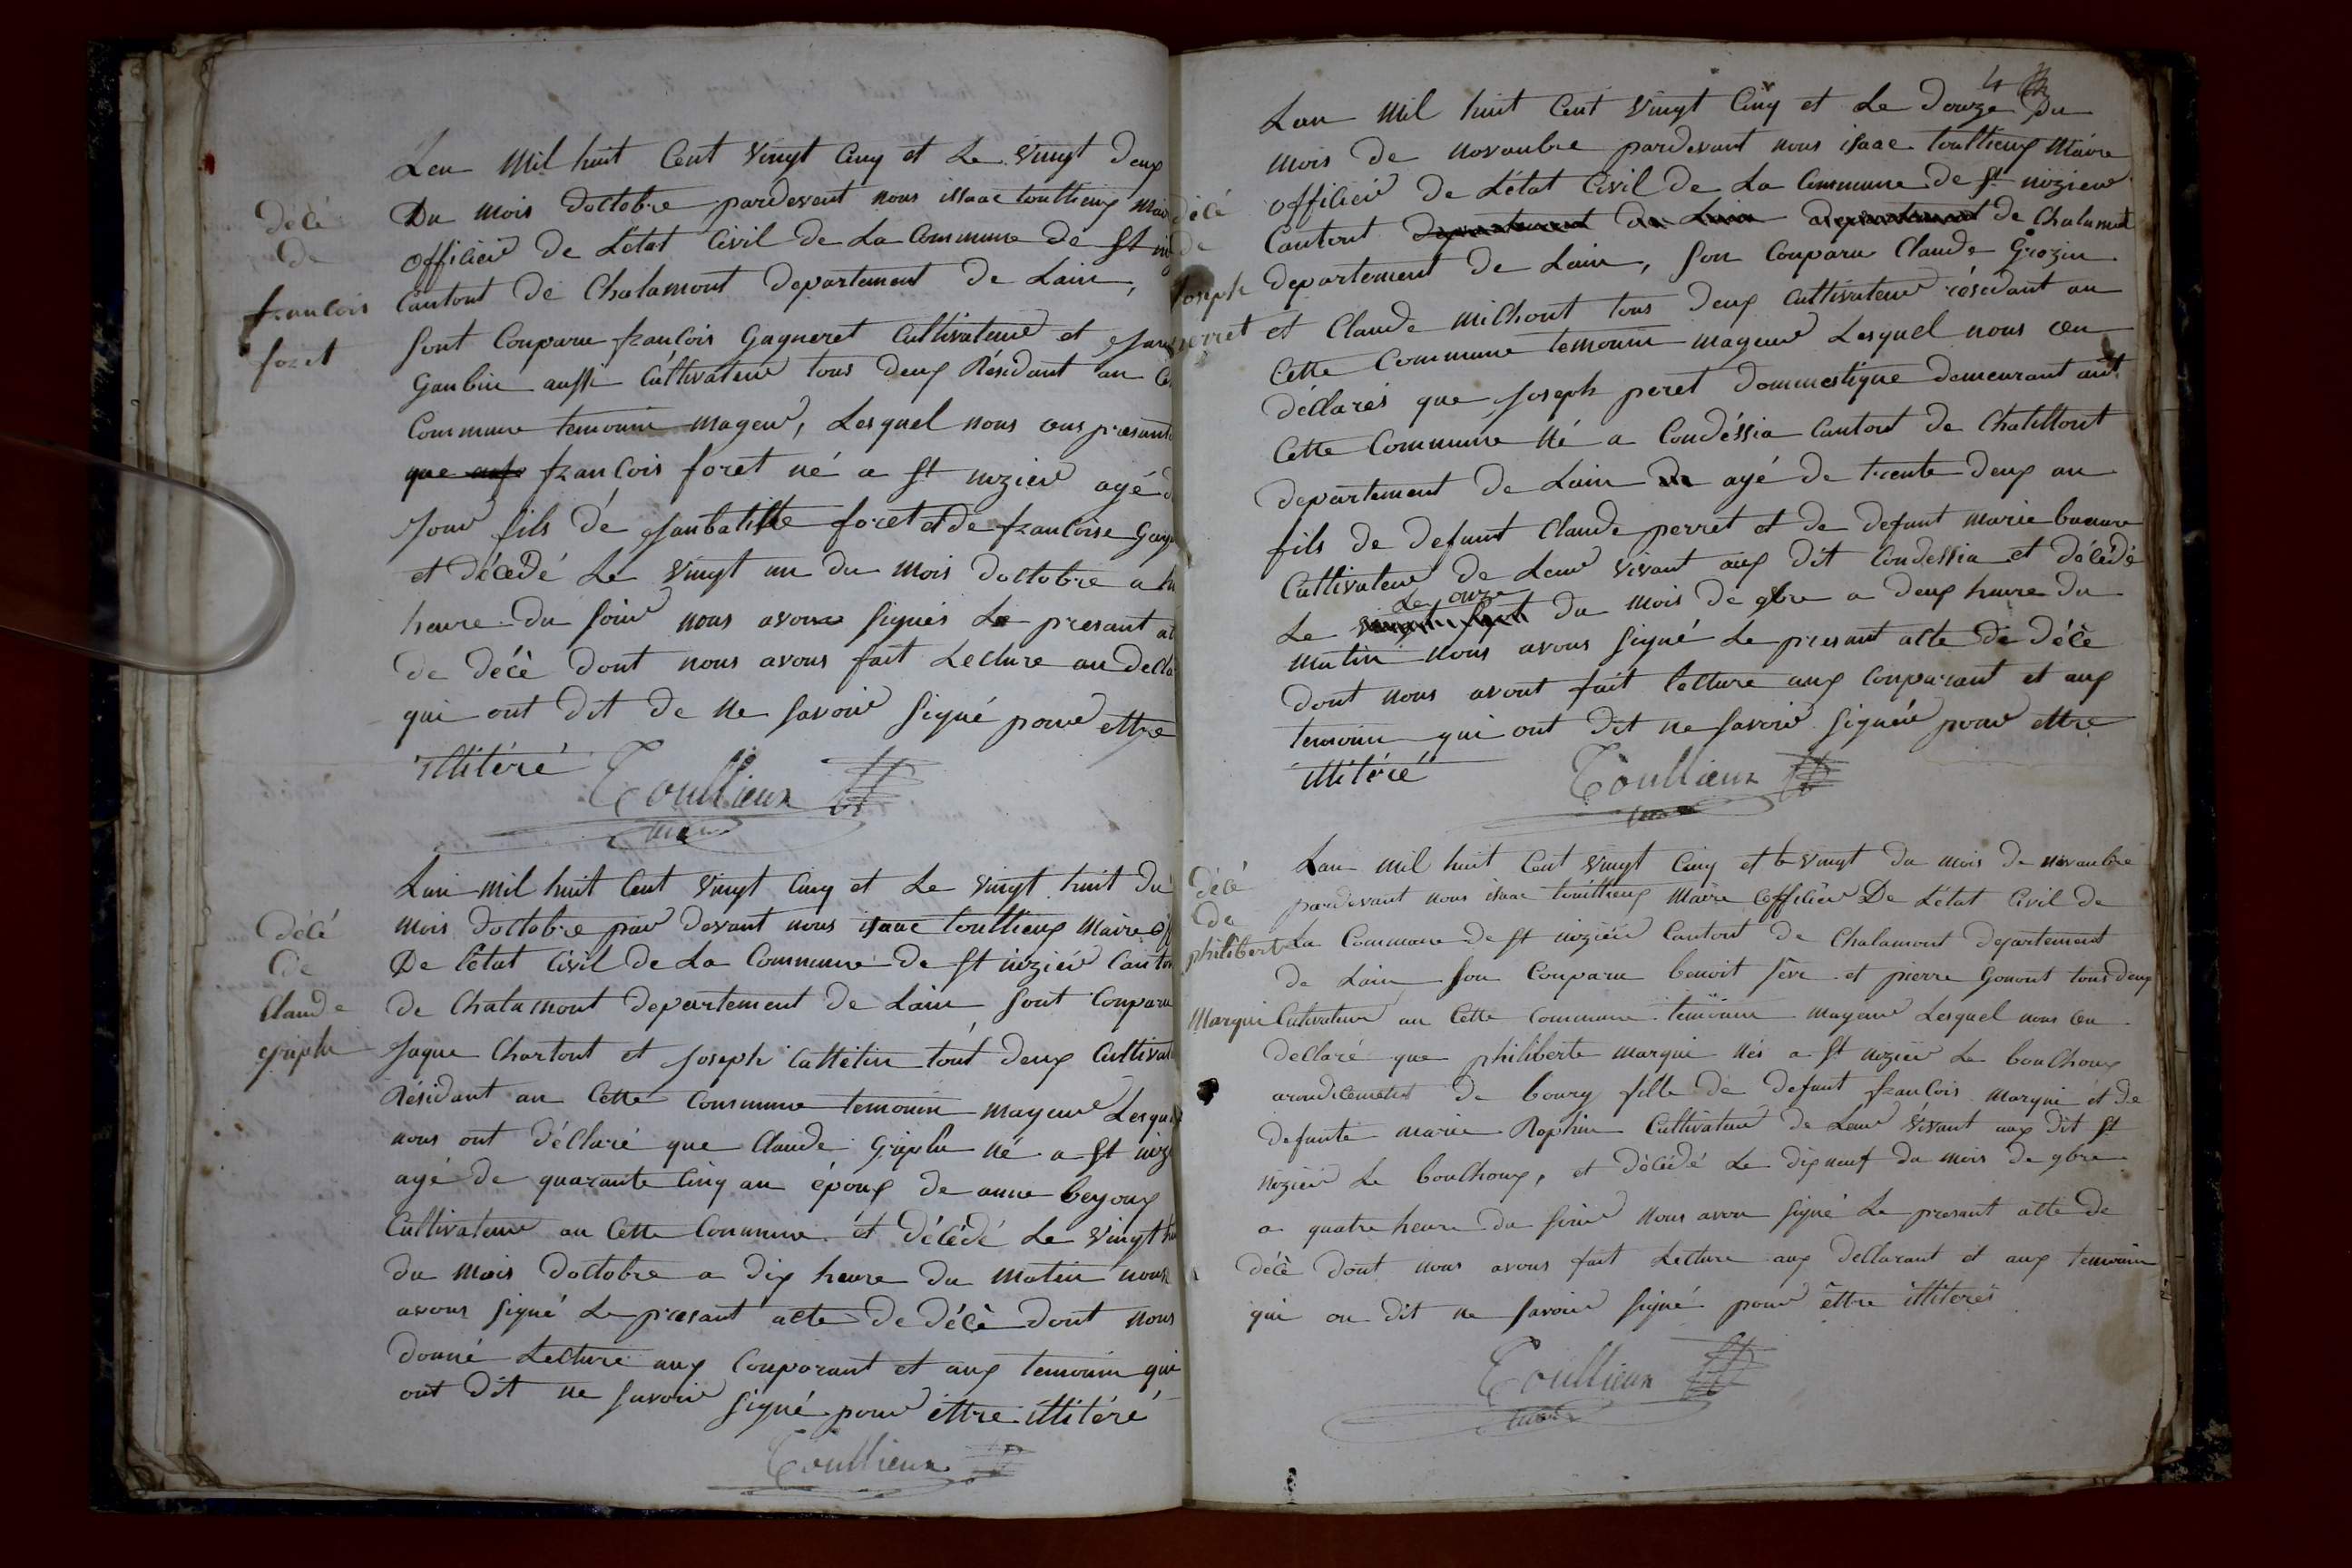 décé
de
francois
foret
Lan mil huit Cent vingt Cinq et Le vingt deux
Du mois doctobre pardevent nous issaac toullieux mair
officier de Létat Civil de La Commune de St
Cantont de Chalamont departement de Lain,
Sont Conparu francois Gagneret Cultivateur et
Gaubin aussi Cultivateur tous deux Résidant an
Commune temouin mageur, Lesquel nous ons presanté
que francois foret né a St nizier agé
jour fils dé janbatiste foret et de francoise
et décédé Le vingt un du mois doctobre a
heure du soir nous avons signés Le presant
de décé dont nous avons fait Lecture au
qui ont dit de ne savoir signé pour ettre
illitéré
Toullieux
maire
décé
de
Claude
griphe
Lan mil huit Cent vingt Cinq et Le vingt huit du
mois doctobre par devant nous isaac toullieux maire
De létat Civil de La Commune de St nizier Canton
de Chalamont departement de Lain sont Conparu
jaque Chartont et joseph Cattelin tout deux
Résidant an Cette Commune temouin mageur
nous ont déclaré que Claude né a St
agé de quarante Cinq an époux de anne beyoux
Cultivateur an Cette Commune et décédé Le vingt
du mois doctobre a dix heure du matin nous
avons signé Le presant acte de décé dont nous
donné Lecture aux Conparant et aux temouin qui
ont dit ne savoir signé pour ettre illitéré
Toullieux
4
décé
de
joseph
perret
Lan mil huit Cent vingt Cinq et Le douze du
mois de novanbre pardevant nous isaac toullieux maire
officier de Létat Civil de La Commune de St nizier
Cantont departement de Lain departement de Chalamont
departement de Lain, son Conparu Claude Grozin
et Claude michont tous deux Cultivateur résidant an
Cette Commune temouin mageur Lesquel nous on
déclarés que joseph peret dommestique demeurant ant
Cette Commune né a Condéssia Cantont de Chatillont
departement de Lain agé de trente deux an
fils de defunt Claude perret et de defunt marie
Cultivateur de Leur vivant aux dit Condessia et décédé
Le onze
Le du mois de 9bre a deux heure du
matin nous avons signé Le presant acte de décé
dont nous avont fait lecture aux Conparant et aux
temouin qui ont dit ne savoir signér pour ettre
illitéré
Toullieux
maire
décé
de
philibert
Marqui
Lan mil huit Cent vingt Cinq et le vingt du mois de novanbre
pardevant nous isaac toullieux Maire officier De Létat Civil de
La Commune de St nizier Cantont de Chalamont departement
de Lain son Conparu benoit fèvr et pierre Gonont tous deux
Cultivateur an Cette Commune temouin mageur Lesquel nous on
declaré que philiberte marqui nés a St nizier Le bouchoux
de bourg fille de defunt francois marqui et de
defunte marie Rophin Cultivateur de Leur vivant aux dit St
nizier Le bouchoux, et décédé Le dixneuf du mois de 9bre
a quatre heure du soir nous avon signé Le presant acte de
décè dont nous avons fait Lecture aux declarant et aux temouin
qui on dit ne savoir signé pour ettre illiteres
Toullieux
maire